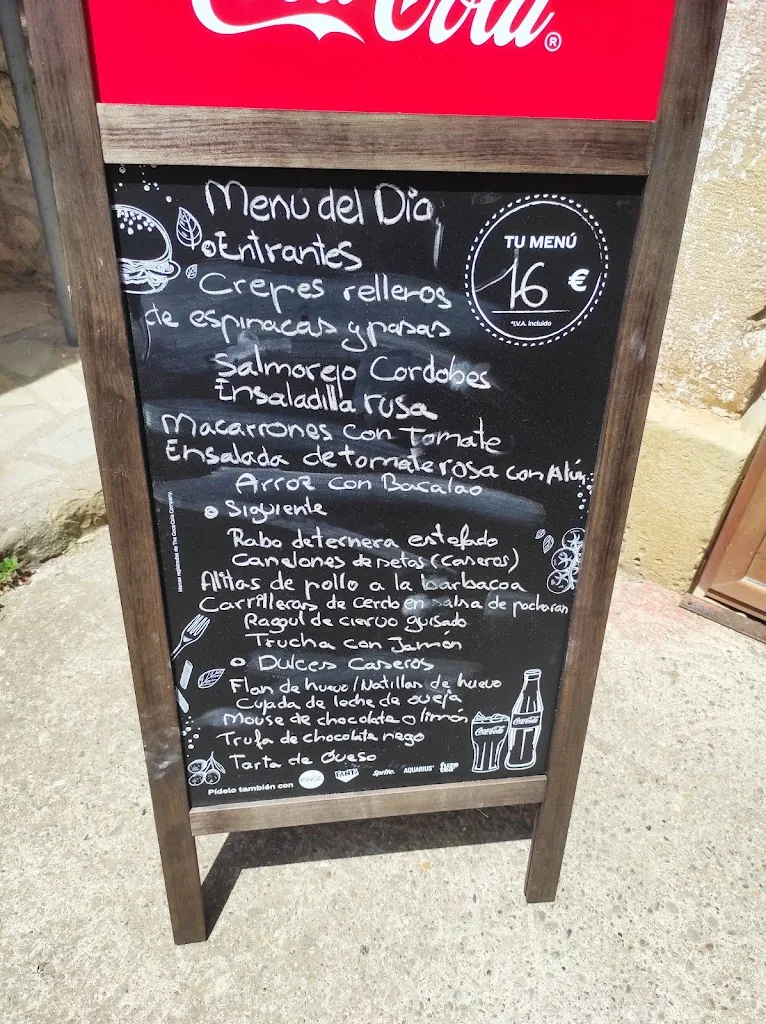 Coca-Cola®
Menu del Dia
TU MENÚ
16 €
*I.V.A. incluido
Entrantes
Crepes relleros
de espinacas y pasas
Salmorejo Cordobes
Ensaladilla rusa
Macarrones con Tomate
Ensalada de tomate rosa con Atún
Arroz con Bacalao
Siguiente
Rabo de ternera estofado
Canelones de setas (caseros)
Alitas de pollo a la barbacoa
Carrilleras de cerdo en salsa de pacharan
Ragout de ciervo guisado
Trucha con Jamón
Dulces Caseros
Flan de huevo / Natillas de huevo
Cuajada de leche de oveja
Mouse de chocolate o limón
Trufa de chocolate nego
Tarta de Queso
Coca-Cola
Coca-Cola
Pídelo también con Coca-Cola FANTA Sprite AQUARIUS fuze tea
Marcas registradas de The Coca-Cola Company.